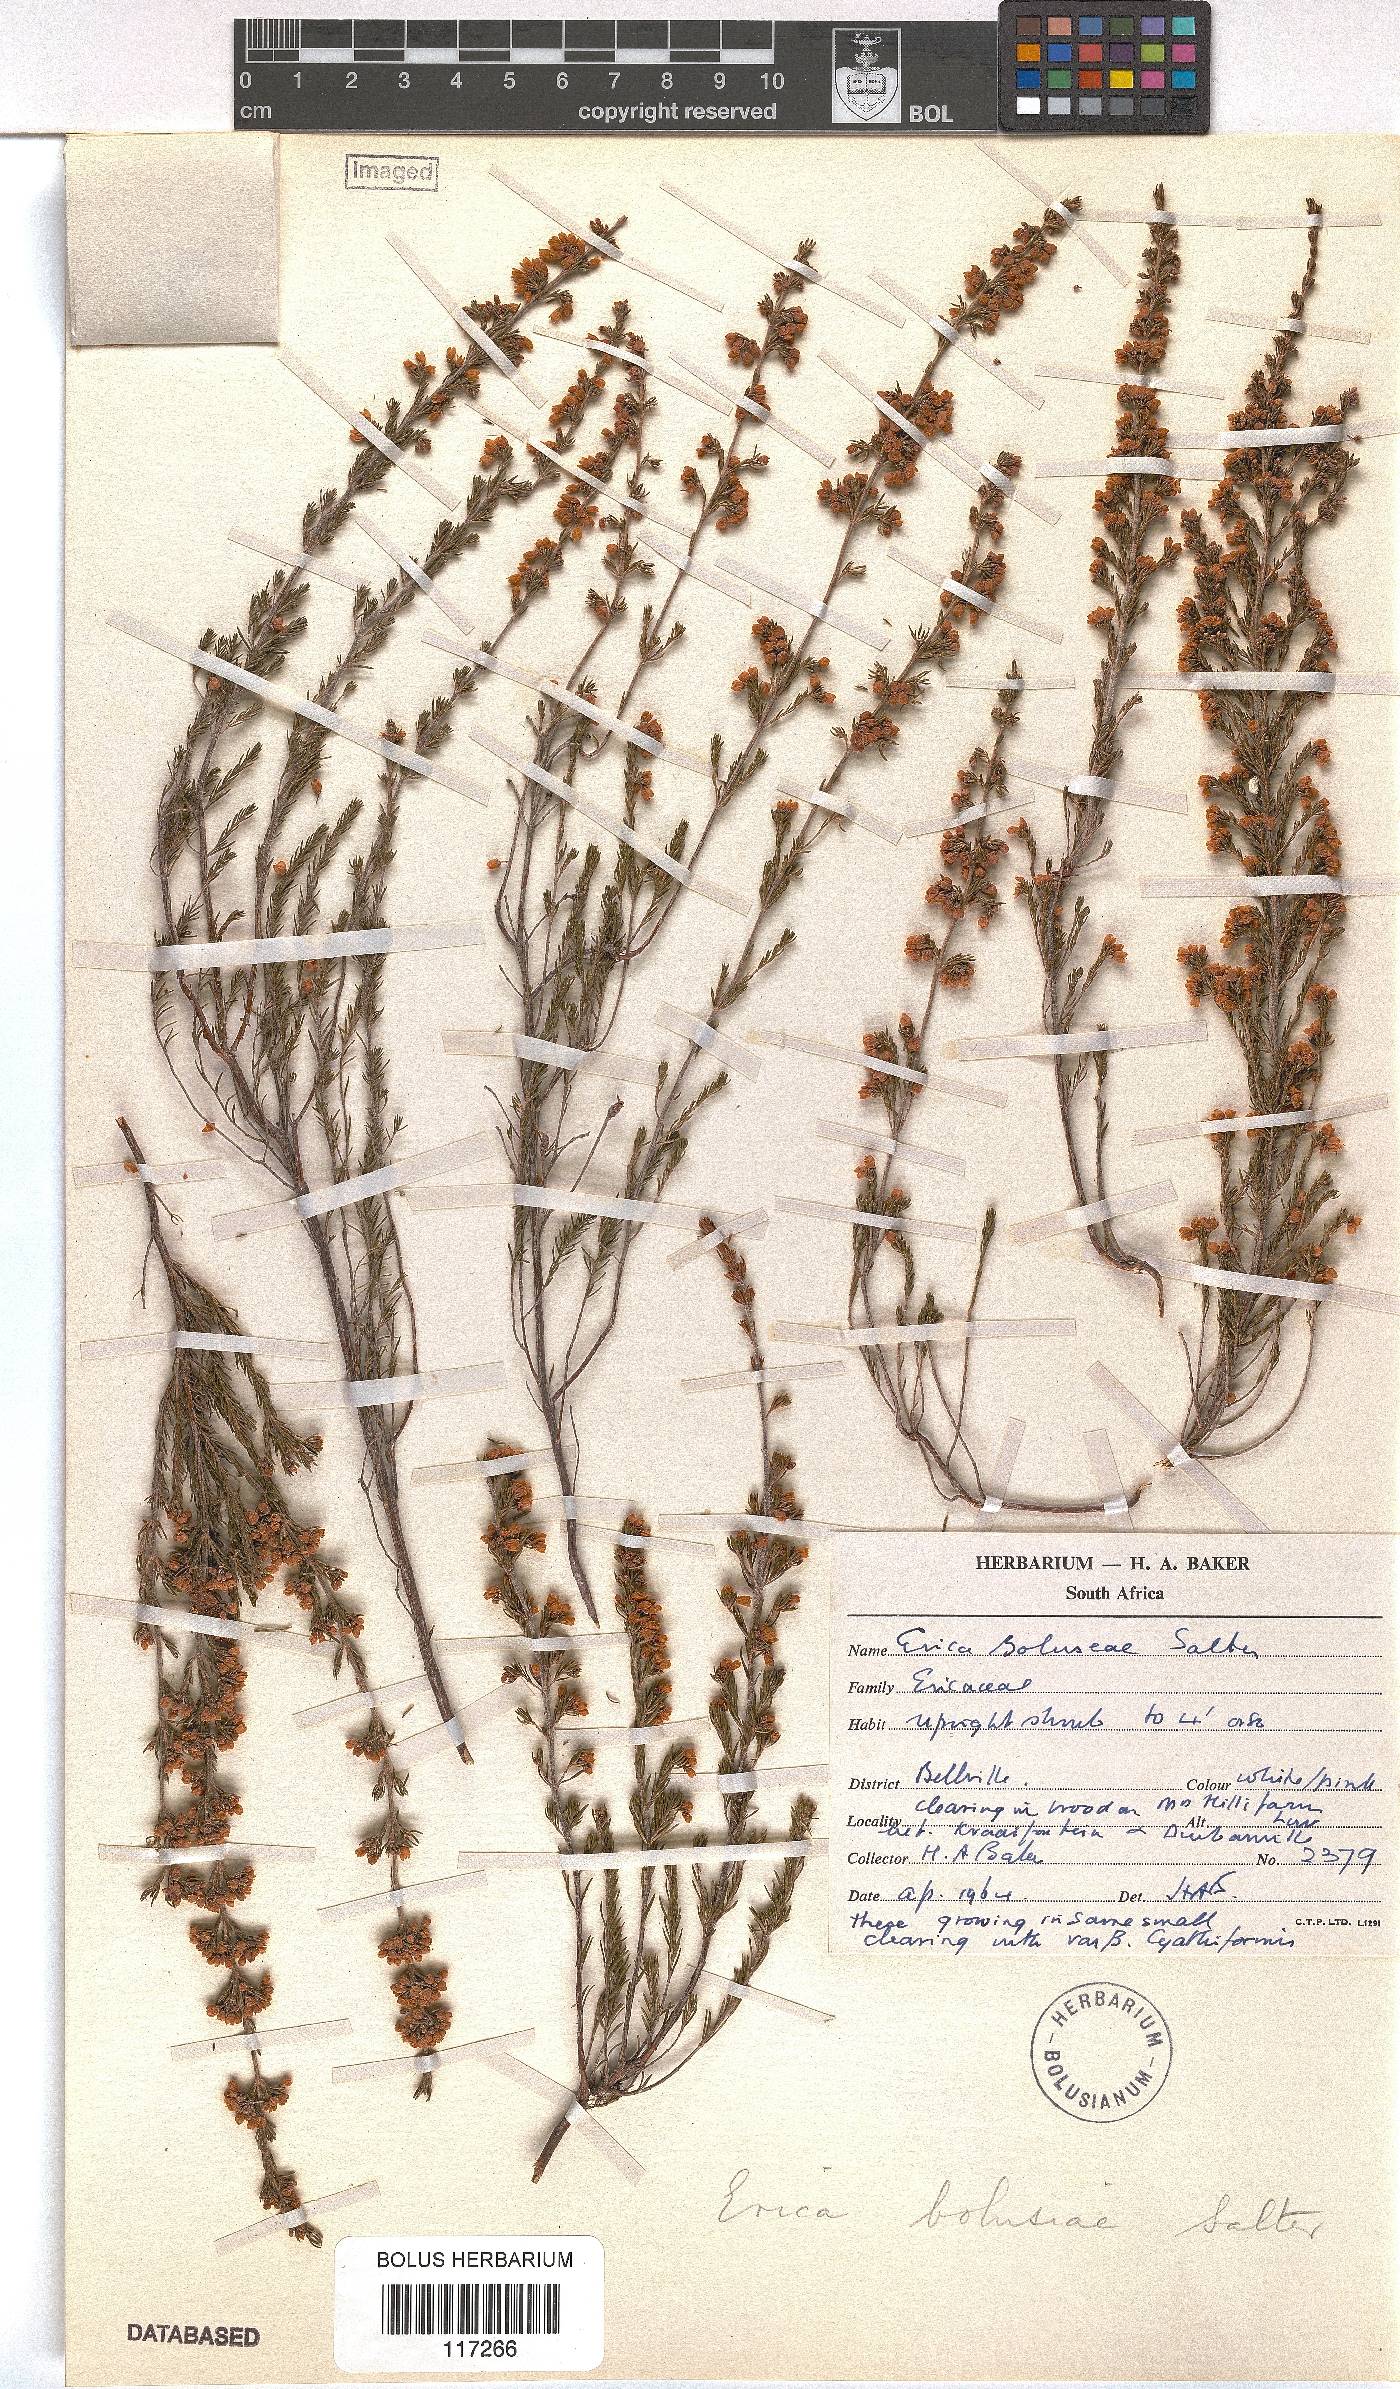 0 1 2 3 4 5 6 7 8 9 10
cm copyright reserved BOL
Imaged
HERBARIUM — H. A. BAKER
South Africa
Name Erica Boluseae Salter
Family Ericaceae
Habit upright shrub to 4' or so
District Bellville. Colour white/pink
clearing in wood on farm
Locality Alt.
bet. Kraaifontein & Durbanville
Collector H. A Baker No. 2379
Date ap. 1964 Det. HAB.
these growing in same small C.T.P. LTD. L1291
clearing with var β. Cyathiformis
HERBARIUM
BOLUSIANUM
Erica bolusiae Salter
BOLUS HERBARIUM
117266
DATABASED